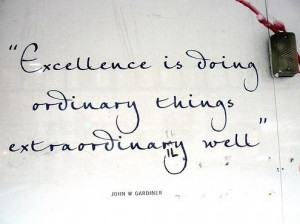 "Excellence is doing
ordinary things
extraordinary well"
JOHN W GARDINER